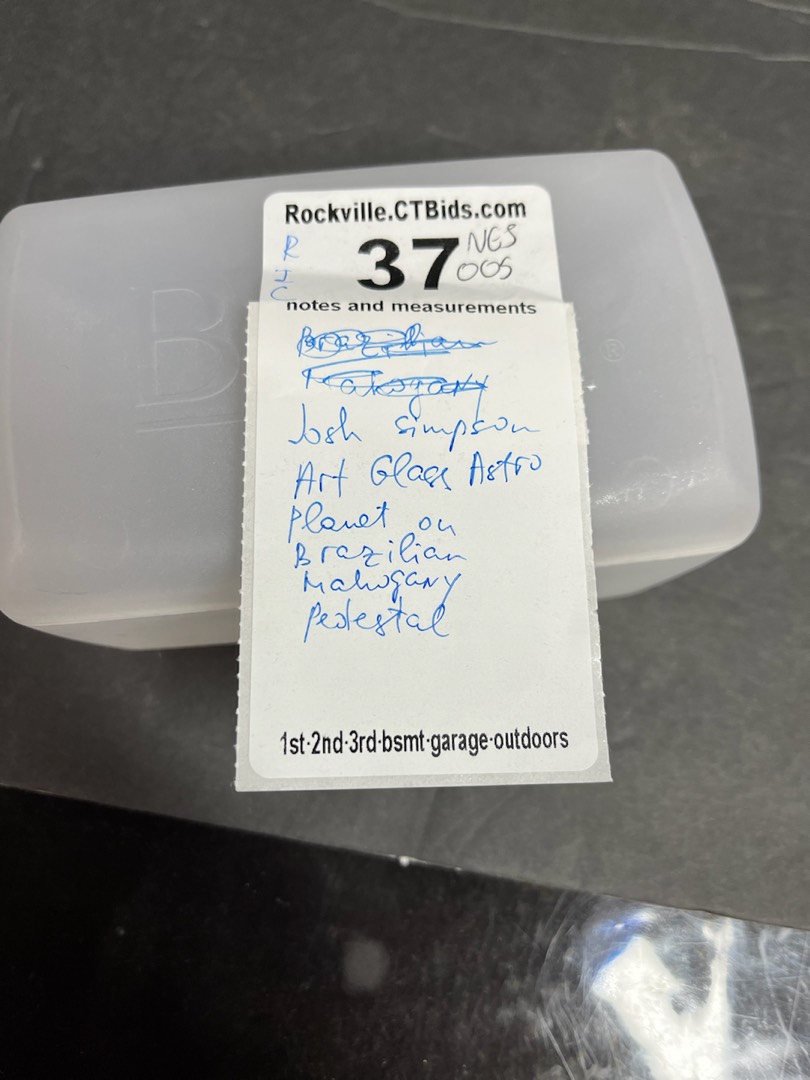 Rockville.CTBids.com
R
37
NGS
005
notes and measurements
Brazilian
Mahogany
Josh simpson
Art Glass Astro
Planet on
Brazilian
Mahogany
Pedestal
1st·2nd·3rd·bsmt·garage·outdoors
B
®